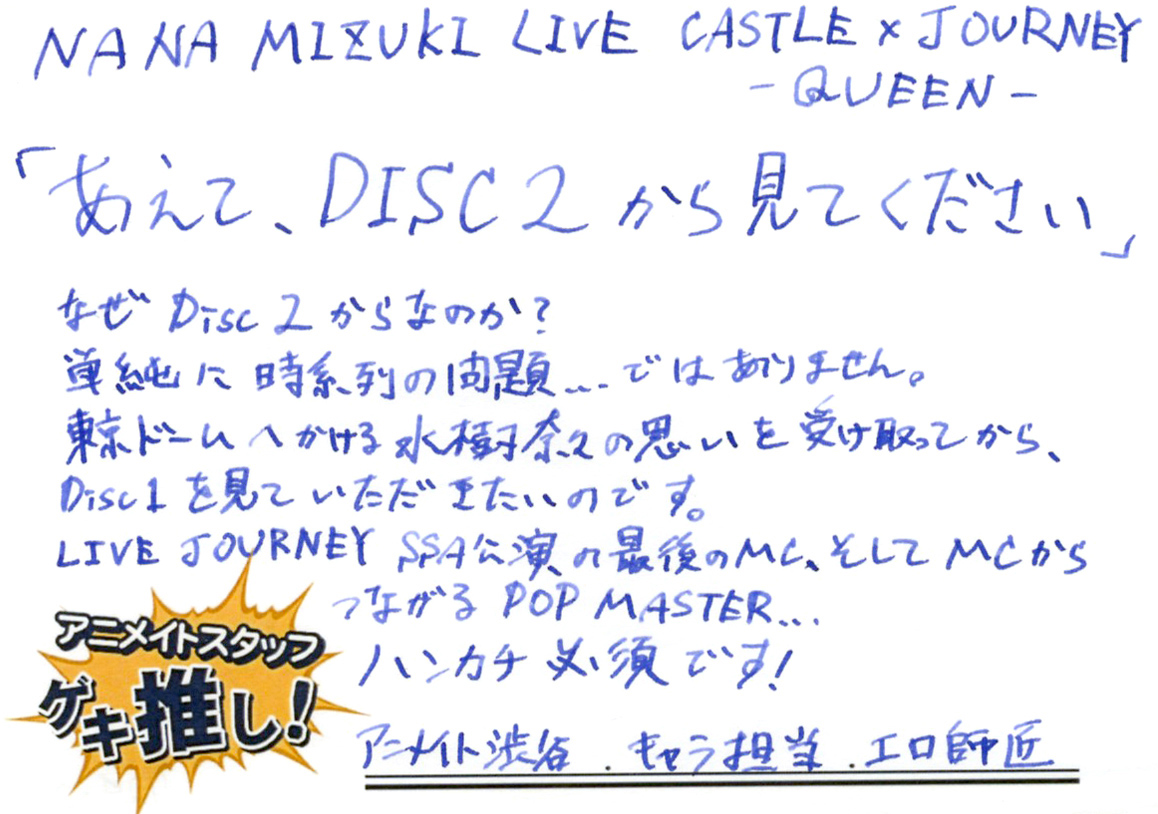 NANA MIZUKI LIVE CASTLE×JOURNEY
-QUEEN-
「あえて、DISC2から見てください」
なぜDisc2からなのか?
単純に時系列の問題...ではありません。
東京ドームへかける水樹奈々の思いを受け取ってから、
Disc1を見ていただきたいのです。
LIVE JOURNEY SSA公演の最後のMC、そしてMCから
つながるPOP MASTER...
ハンカチ必須です!
アニメイトスタッフ
ゲキ推し!
アニメイト渋谷.キャラ担当.エロ師匠